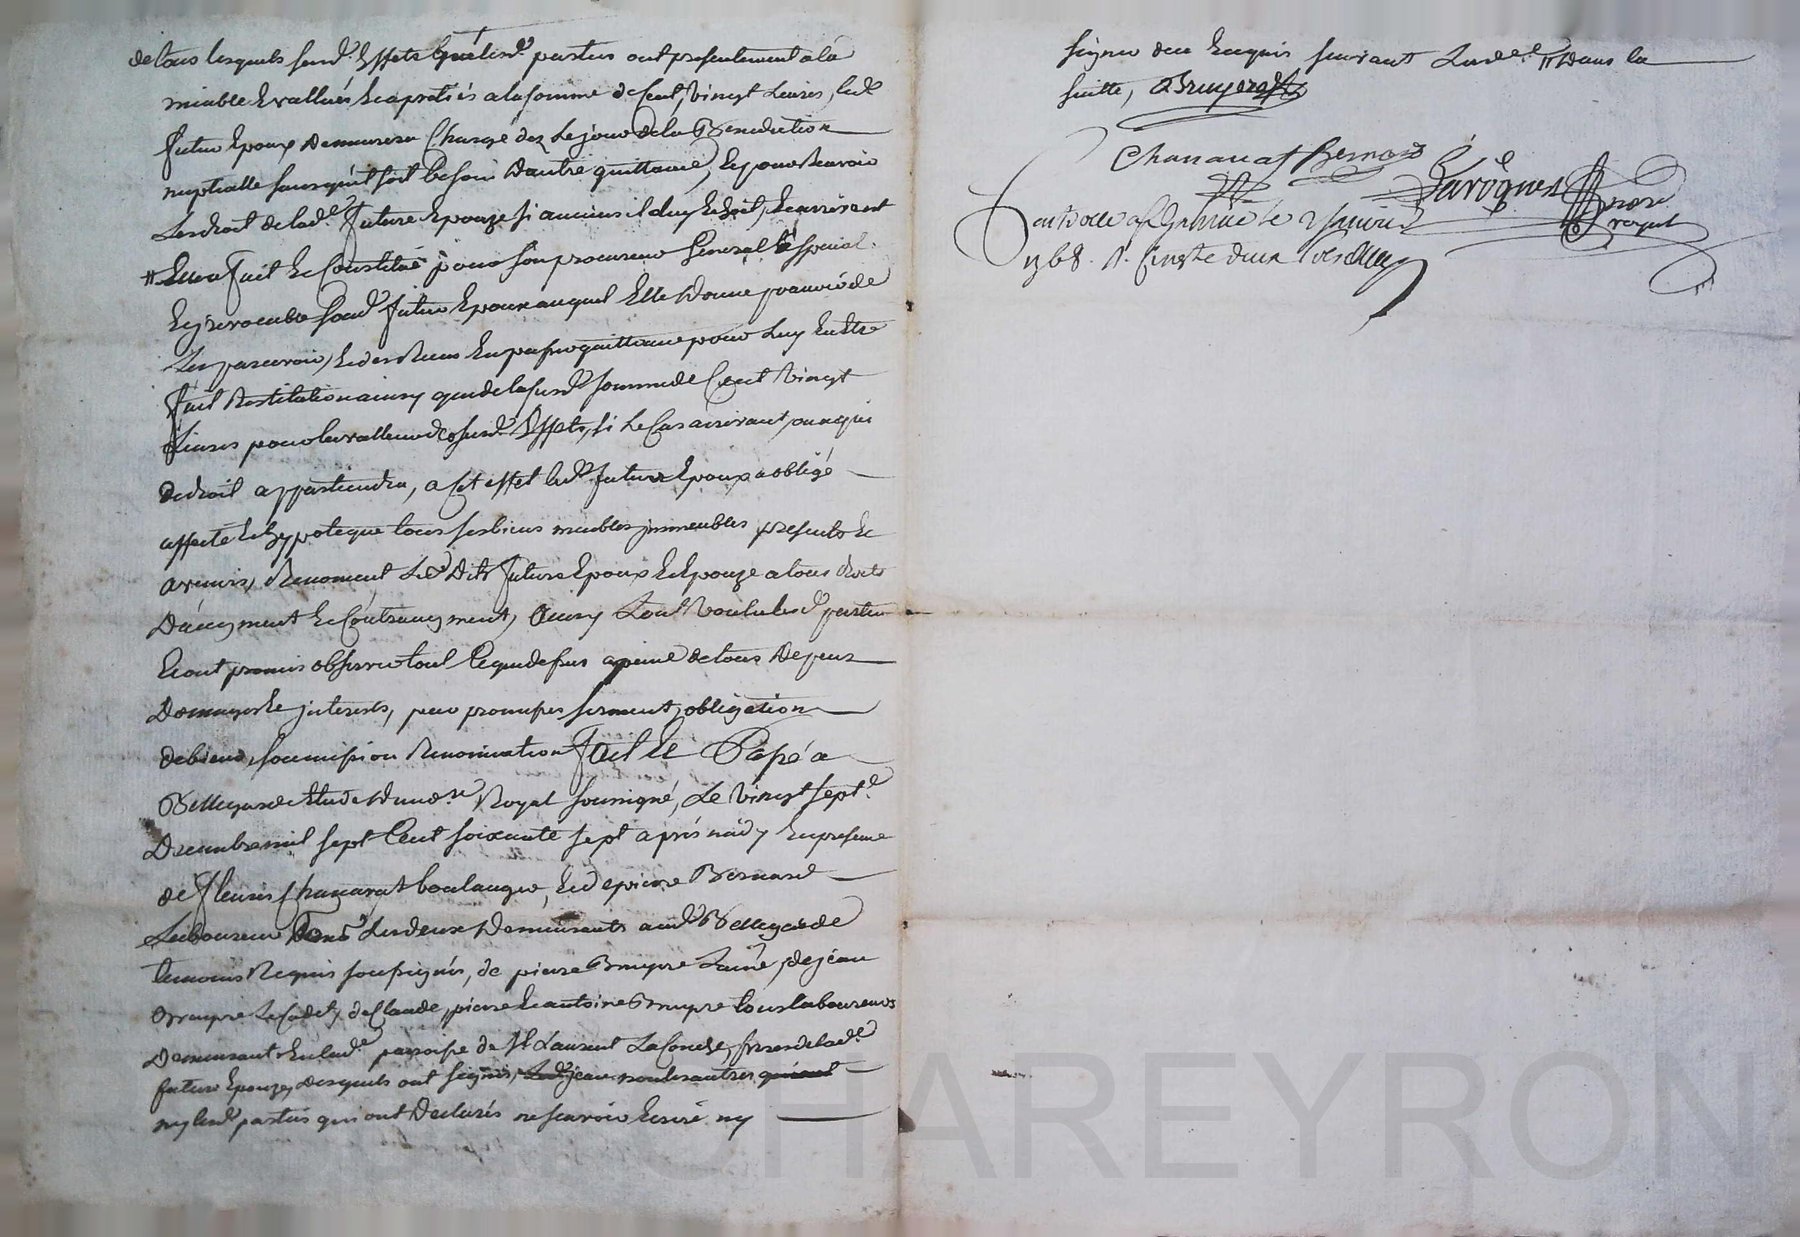 de tous lesquels susd. Effets que lesd. parties ont presentement a la
miable Evallués Et apretiés a la somme de Cent, vingt Livres, led.
futur Epoux demeurera Chargé dez Le jour de la Benediction
nuptialle sans qu'il soit besoin d'autre quittance, Et pour Recevoir
Les droit de lad. future Epouze si aucuns il luy Echoit, Et arrivant
Elle a fait Et Constitué pour son procureur General Et special
Et irrevocable sond. futur Epoux auquel Elle donne pouvoir de
Les parcevoir, Et des Recus En passer quittance pour Luy En Etre
fait Restitution ainsy que de la susd. somme de Cent vingt
Livres pour la valleur de susd. Effets, si Le Cas arrivant, ou a qui
de droit appartiendra, a Cet effet led. futur Epoux a obligé
affecté Et hypotequé tous ses biens meubles immeubles presents Et
avenir, Renoncent Les dits futurs Epoux Et Epouze a tous droits
D'augment Et Contraugment, Ainsy L'ont voulu lesd. parties
Et ont promis observer tout Ce que dessus a peine de tous Depens
Domages Et interests, par promesses serment, obligation
de biens, soumission Renonciation fait Et Passé a
Bellegarde Etude du no.re Royal soussigné, Le vingt sept.e
Decembre mil sept Cent soixante sept après midy En presence
de fleury Chanavat boulanger, Et de pierre Bernard
Laboureur Les deux demeurants aud. Bellegarde
temoins Requis soussignés, de pierre Bruyere Lainé, de jean
Bruyere Le Cadet, de Claude, pierre Et antoine Bruyere tous laboureurs
demeurant En lad. paroisse de St Laurent La Conche, freres de lad.
future Epouze, Lesquels ont signés, Led. jean non les autres
ny lesd. parties qui ont Declarés ne sçavoir Ecrire ny
signer de ce Enquis suivant L'ord.ce // dans la
suitte, Bruyere
Chanavat Bernard
Laroque
no.re royal
Controllé a le 2 janvier
1768. R.
CHAREYRON